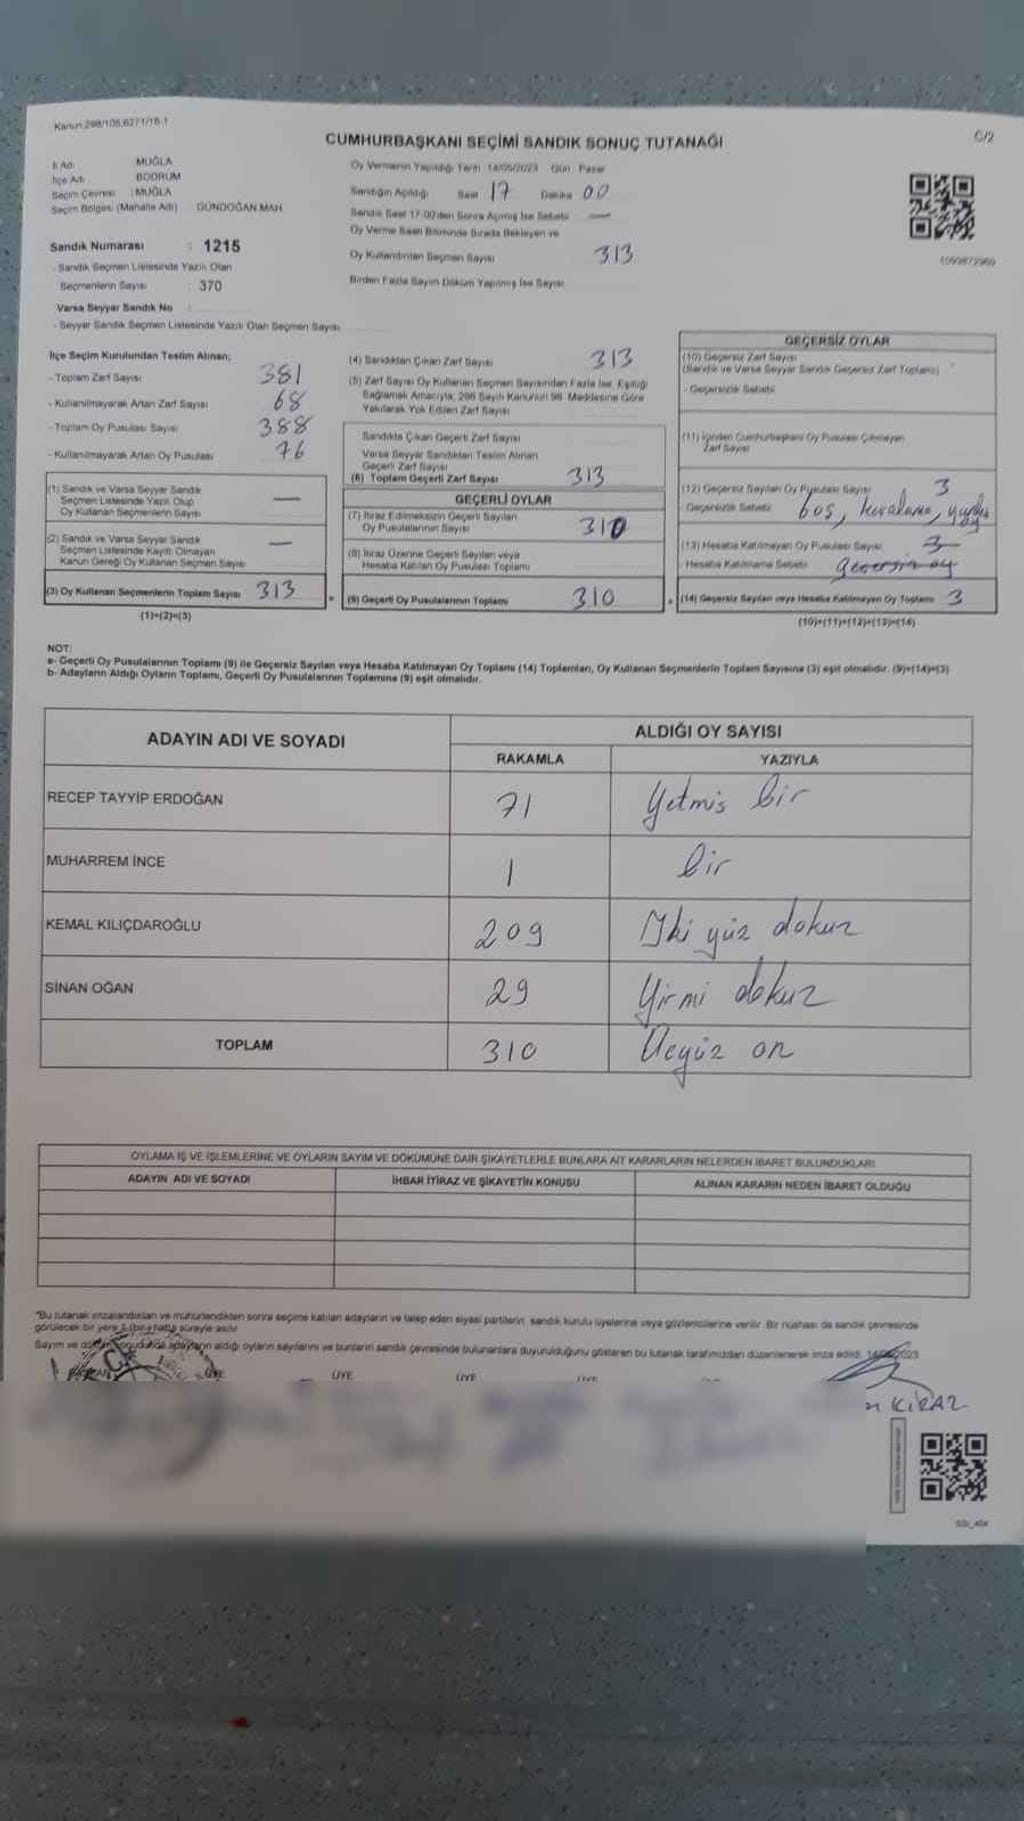 Kanun:298/105,6271/18-1
C/2
CUMHURBAŞKANI SEÇİMİ SANDIK SONUÇ TUTANAĞI
İl Adı: MUĞLA
İlçe Adı: BODRUM
Seçim Çevresi : MUĞLA
Seçim Bölgesi (Mahalle Adı) GÜNDOĞAN MAH
Sandık Numarası : 1215
- Sandık Seçmen Listesinde Yazılı Olan
Seçmenlerin Sayısı : 370
Varsa Seyyar Sandık No :
- Seyyar Sandık Seçmen Listesinde Yazılı Olan Seçmen Sayısı
Oy Vermenin Yapıldığı Tarih 14/05/2023 Gün Pazar
Sandığın Açıldığı Saat 17 Dakika 00
Sandık Saat 17:00'den Sonra Açılmış İse Sebebi —
Oy Verme Saati Bitiminde Sırada Bekleyen ve
Oy Kullandırılan Seçmen Sayısı 313
Birden Fazla Sayım Döküm Yapılmış İse Sayısı
İlçe Seçim Kurulundan Teslim Alınan;
- Toplam Zarf Sayısı 381
- Kullanılmayarak Artan Zarf Sayısı 68
- Toplam Oy Pusulası Sayısı 388
- Kullanılmayarak Artan Oy Pusulası 76
(1) Sandık ve Varsa Seyyar Sandık
Seçmen Listesinde Yazılı Olup
Oy Kullanan Seçmenlerin Sayısı —
(2) Sandık ve Varsa Seyyar Sandık
Seçmen Listesinde Kayıtlı Olmayan
Kanun Gereği Oy Kullanan Seçmen Sayısı —
(3) Oy Kullanan Seçmenlerin Toplam Sayısı 313
(1)+(2)=(3)
(4) Sandıktan Çıkan Zarf Sayısı 313
(5) Zarf Sayısı Oy Kullanan Seçmen Sayısından Fazla İse, Eşitliği
Sağlamak Amacıyla, 298 Sayılı Kanunun 98. Maddesine Göre
Yakılarak Yok Edilen Zarf Sayısı
Sandıkta Çıkan Geçerli Zarf Sayısı
Varsa Seyyar Sandıktan Teslim Alınan
Geçerli Zarf Sayısı
(6) Toplam Geçerli Zarf Sayısı 313
GEÇERLİ OYLAR
(7) İtiraz Edilmeksizin Geçerli Sayılan
Oy Pusulalarının Sayısı 310
(8) İtiraz Üzerine Geçerli Sayılan veya
Hesaba Katılan Oy Pusulası Toplamı
(9) Geçerli Oy Pusulalarının Toplamı 310
GEÇERSİZ OYLAR
(10) Geçersiz Zarf Sayısı
(Sandık ve Varsa Seyyar Sandık Geçersiz Zarf Toplamı)
- Geçersizlik Sebebi
(11) İçinden Cumhurbaşkanı Oy Pusulası Çıkmayan
Zarf Sayısı
(12) Geçersiz Sayılan Oy Pusulası Sayısı 3
Geçersizlik Sebebi boş,
(13) Hesaba Katılmayan Oy Pusulası Sayısı 3
- Hesaba Katılmama Sebebi geçersiz oy
(14) Geçersiz Sayılan veya Hesaba Katılmayan Oy Toplamı 3
(10)+(11)+(12)+(13)=(14)
NOT:
a- Geçerli Oy Pusulalarının Toplamı (9) ile Geçersiz Sayılan veya Hesaba Katılmayan Oy Toplamı (14) Toplamları, Oy Kullanan Seçmenlerin Toplam Sayısına (3) eşit olmalıdır. (9)+(14)=(3)
b- Adayların Aldığı Oyların Toplamı, Geçerli Oy Pusulalarının Toplamına (9) eşit olmalıdır.
ADAYIN ADI VE SOYADI
ALDIĞI OY SAYISI
RAKAMLA YAZIYLA
RECEP TAYYİP ERDOĞAN 71 Yetmiş bir
MUHARREM İNCE 1 bir
KEMAL KILIÇDAROĞLU 209 İki yüz dokuz
SİNAN OĞAN 29 Yirmi dokuz
TOPLAM 310 Üçyüz on
OYLAMA İŞ VE İŞLEMLERİNE VE OYLARIN SAYIM VE DÖKÜMÜNE DAİR ŞİKAYETLERLE BUNLARA AİT KARARLARIN NELERDEN İBARET BULUNDUKLARI
ADAYIN ADI VE SOYADI İHBAR İTİRAZ VE ŞİKAYETİN KONUSU ALINAN KARARIN NEDEN İBARET OLDUĞU
"Bu tutanak imzalandıktan ve mühürlendikten sonra seçime katılan adayların ve talep eden siyasi partilerin, sandık kurulu üyelerine veya gözlemcilerine verilir. Bir nüshası da sandık çevresinde
görülecek bir yere 1 (bir) hafta süreyle asılır
Sayım ve adayların aldığı oyların sayılarını ve bunların sandık çevresinde bulunanlara duyurulduğunu gösteren bu tutanak tarafımızdan düzenlenerek imza edildi.
ÜYE ÜYE ÜYE ÜYE
KİRAZ